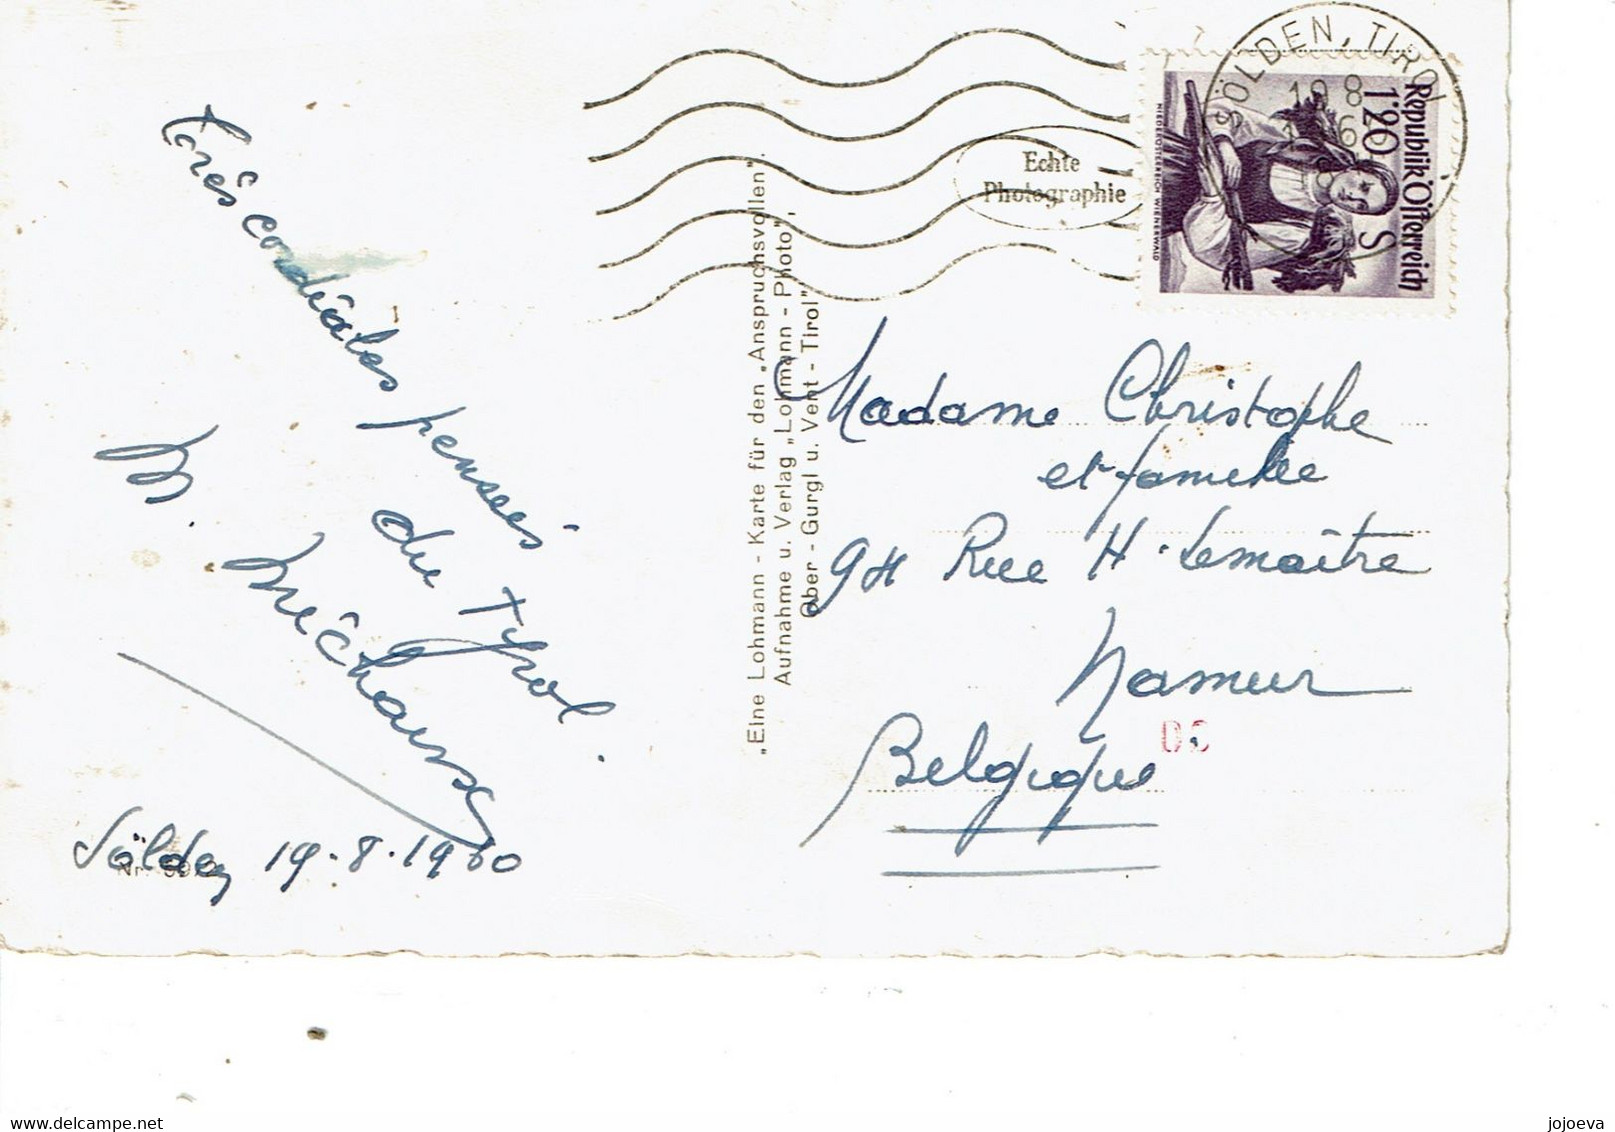 Très cordiales pensées
du Tyrol.
M.
Sölden 19-8-1960
Nr.
„Eine Lohmann - Karte für den „Anspruchsvollen".
Aufnahme u. Verlag „Lohmann - Photo",
Ober - Gurgl u. Vent - Tirol"
Echte
Photographie
SÖLDEN, TIROL
19 8
Republik Österreich
1'20 S
NIEDERÖSTERREICH WIENERWALD
Madame Christophe
et famille
94 Rue H. Lemaître
Namur
Belgique
jojoeva